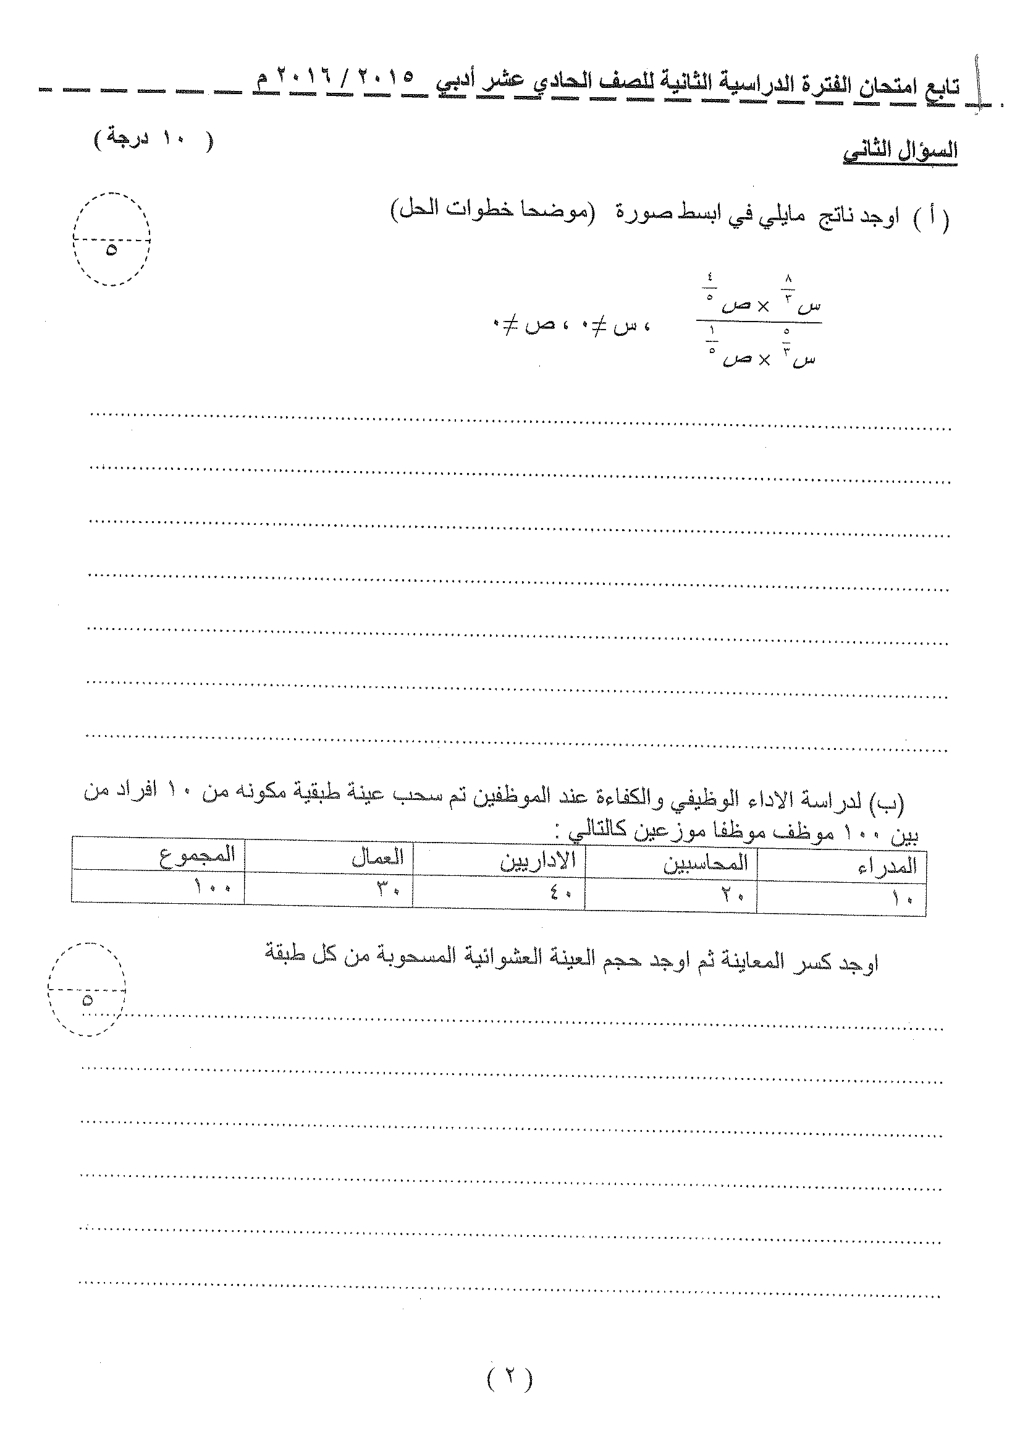 تابع امتحان الفترة الدراسية الثانية للصف الحادي عشر أدبي ٢٠١٥ / ٢٠١٦ م
السؤال الثاني ( ١٠ درجة )
( أ ) اوجد ناتج مايلي في ابسط صورة (موضحا خطوات الحل)
٥
س^(٨/٣) × ص^(٤/٥)
، س ≠ ٠ ، ص ≠ ٠
س^(٥/٣) × ص^(١/٥)
(ب) لدراسة الاداء الوظيفي والكفاءة عند الموظفين تم سحب عينة طبقية مكونه من ١٠ افراد من
بين ١٠٠ موظف موظفا موزعين كالتالي :
المدراء المحاسبين الاداريين العمال المجموع
١٠ ٢٠ ٤٠ ٣٠ ١٠٠
اوجد كسر المعاينة ثم اوجد حجم العينة العشوائية المسحوبة من كل طبقة
٥
( ٢ )